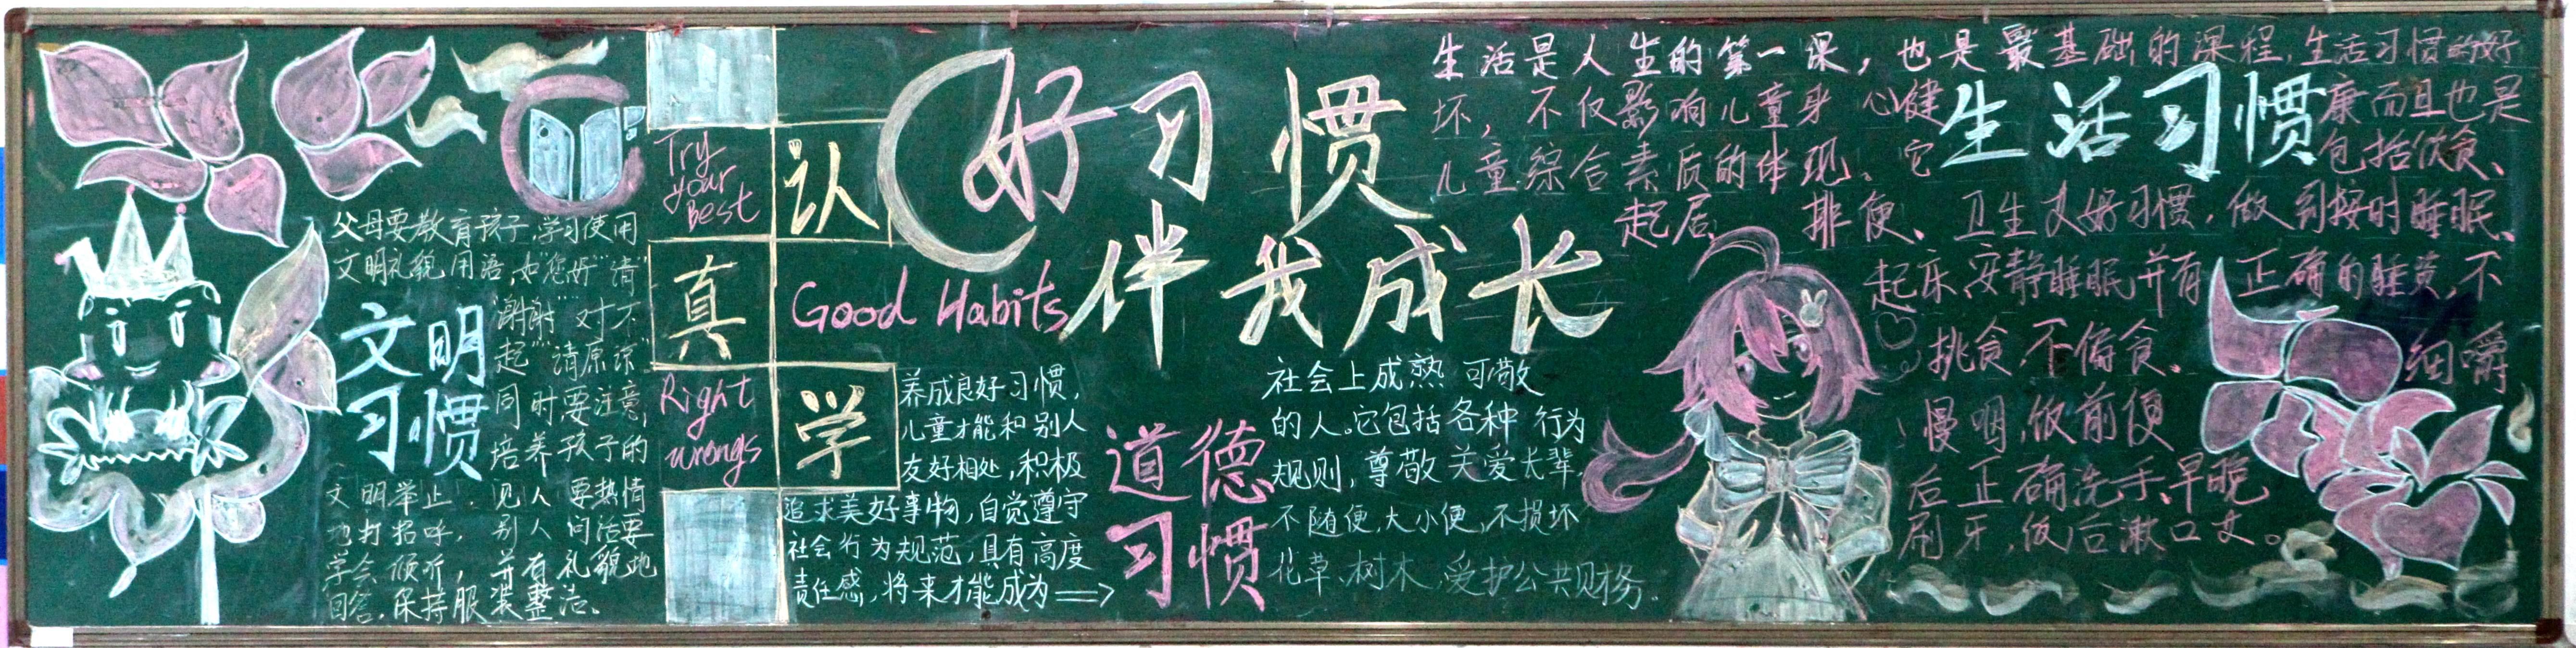 父母要教育孩子,学习使用
文明礼貌用语,如"您好""请"
"谢谢""对不
起""请原谅"
同时要注意,
培养孩子的
文明举止,见人要热情
地打招呼,别人问话要
学会倾听,并有礼貌地
回答,保持服装整洁、
文明
习惯
Try
your
Best
认
真
Right
wrongs
学
好习惯
伴我成长
Good Habits
养成良好习惯,
儿童才能和别人
友好相处,积极
追求美好事物,自觉遵守
社会行为规范,具有高度
责任感,将来才能成为⟹
道德
习惯
社会上成熟可敬
的人。它包括各种行为
规则,尊敬关爱长辈,
不随便,大小便,不损坏
花草、树木,爱护公共财务。
生活是人生的第一课,也是最基础的课程,生活习惯的好
坏,不仅影响儿童身心健康而且也是
儿童综合素质的体现。它包括饮食、
起居、排便、卫生文好习惯,做到按时睡眠、
起床、安静睡眠并有正确的睡姿,不
挑食,不偏食、细嚼
慢咽,饭前便
后正确洗手、早晚
刷牙,饭后漱口文。
生活习惯